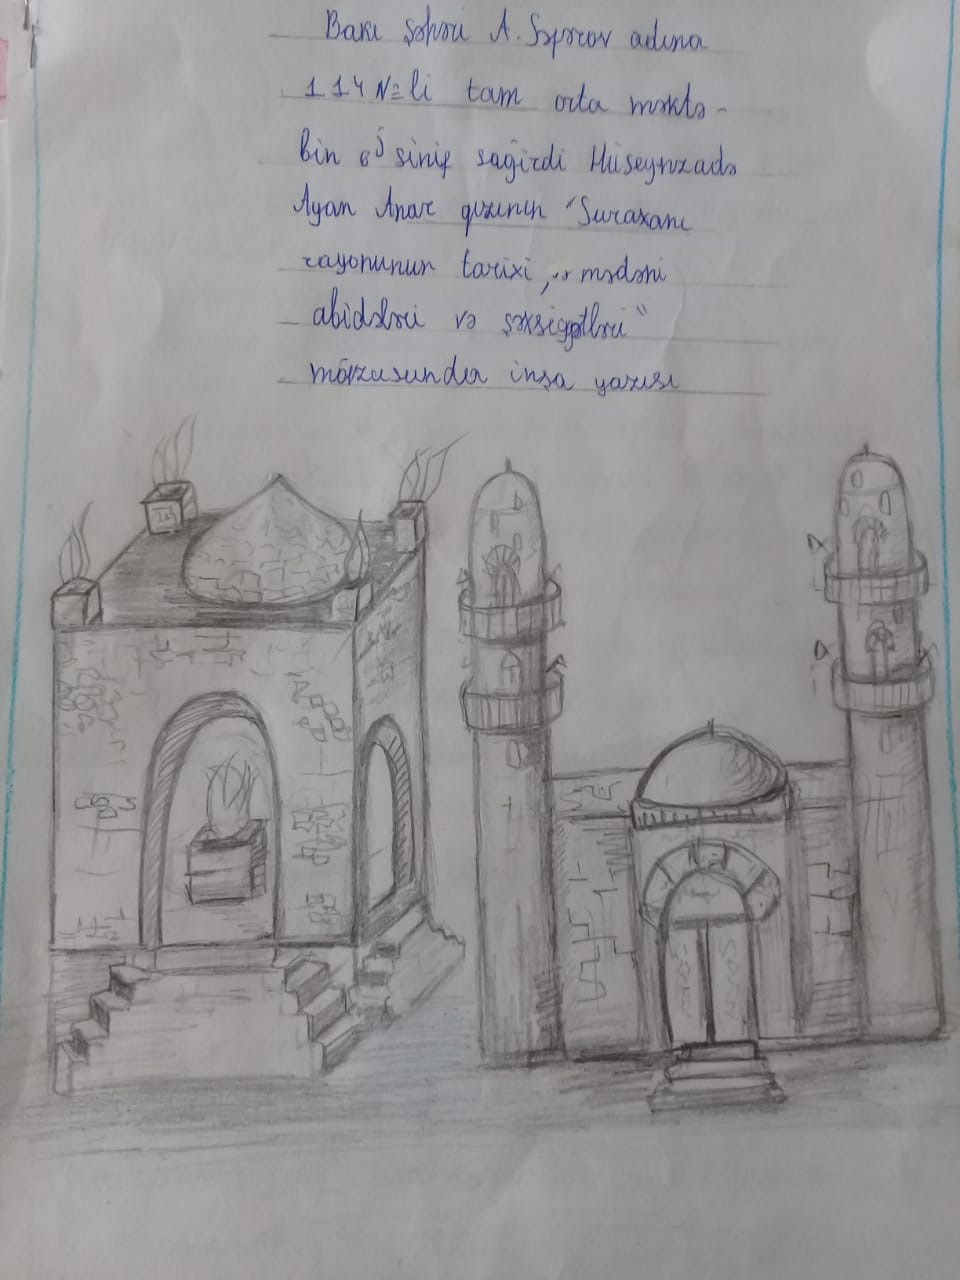 Bakı şəhəri A. Səfərov adına
114 №li tam orta məktə-
bin 6 sinif şagirdi Hüseynzadə
Ayan Anar qızının "Suraxanı
rayonunun tarixi, mədəni
abidələri və şəxsiyyətləri"
mövzusunda inşa yazısı